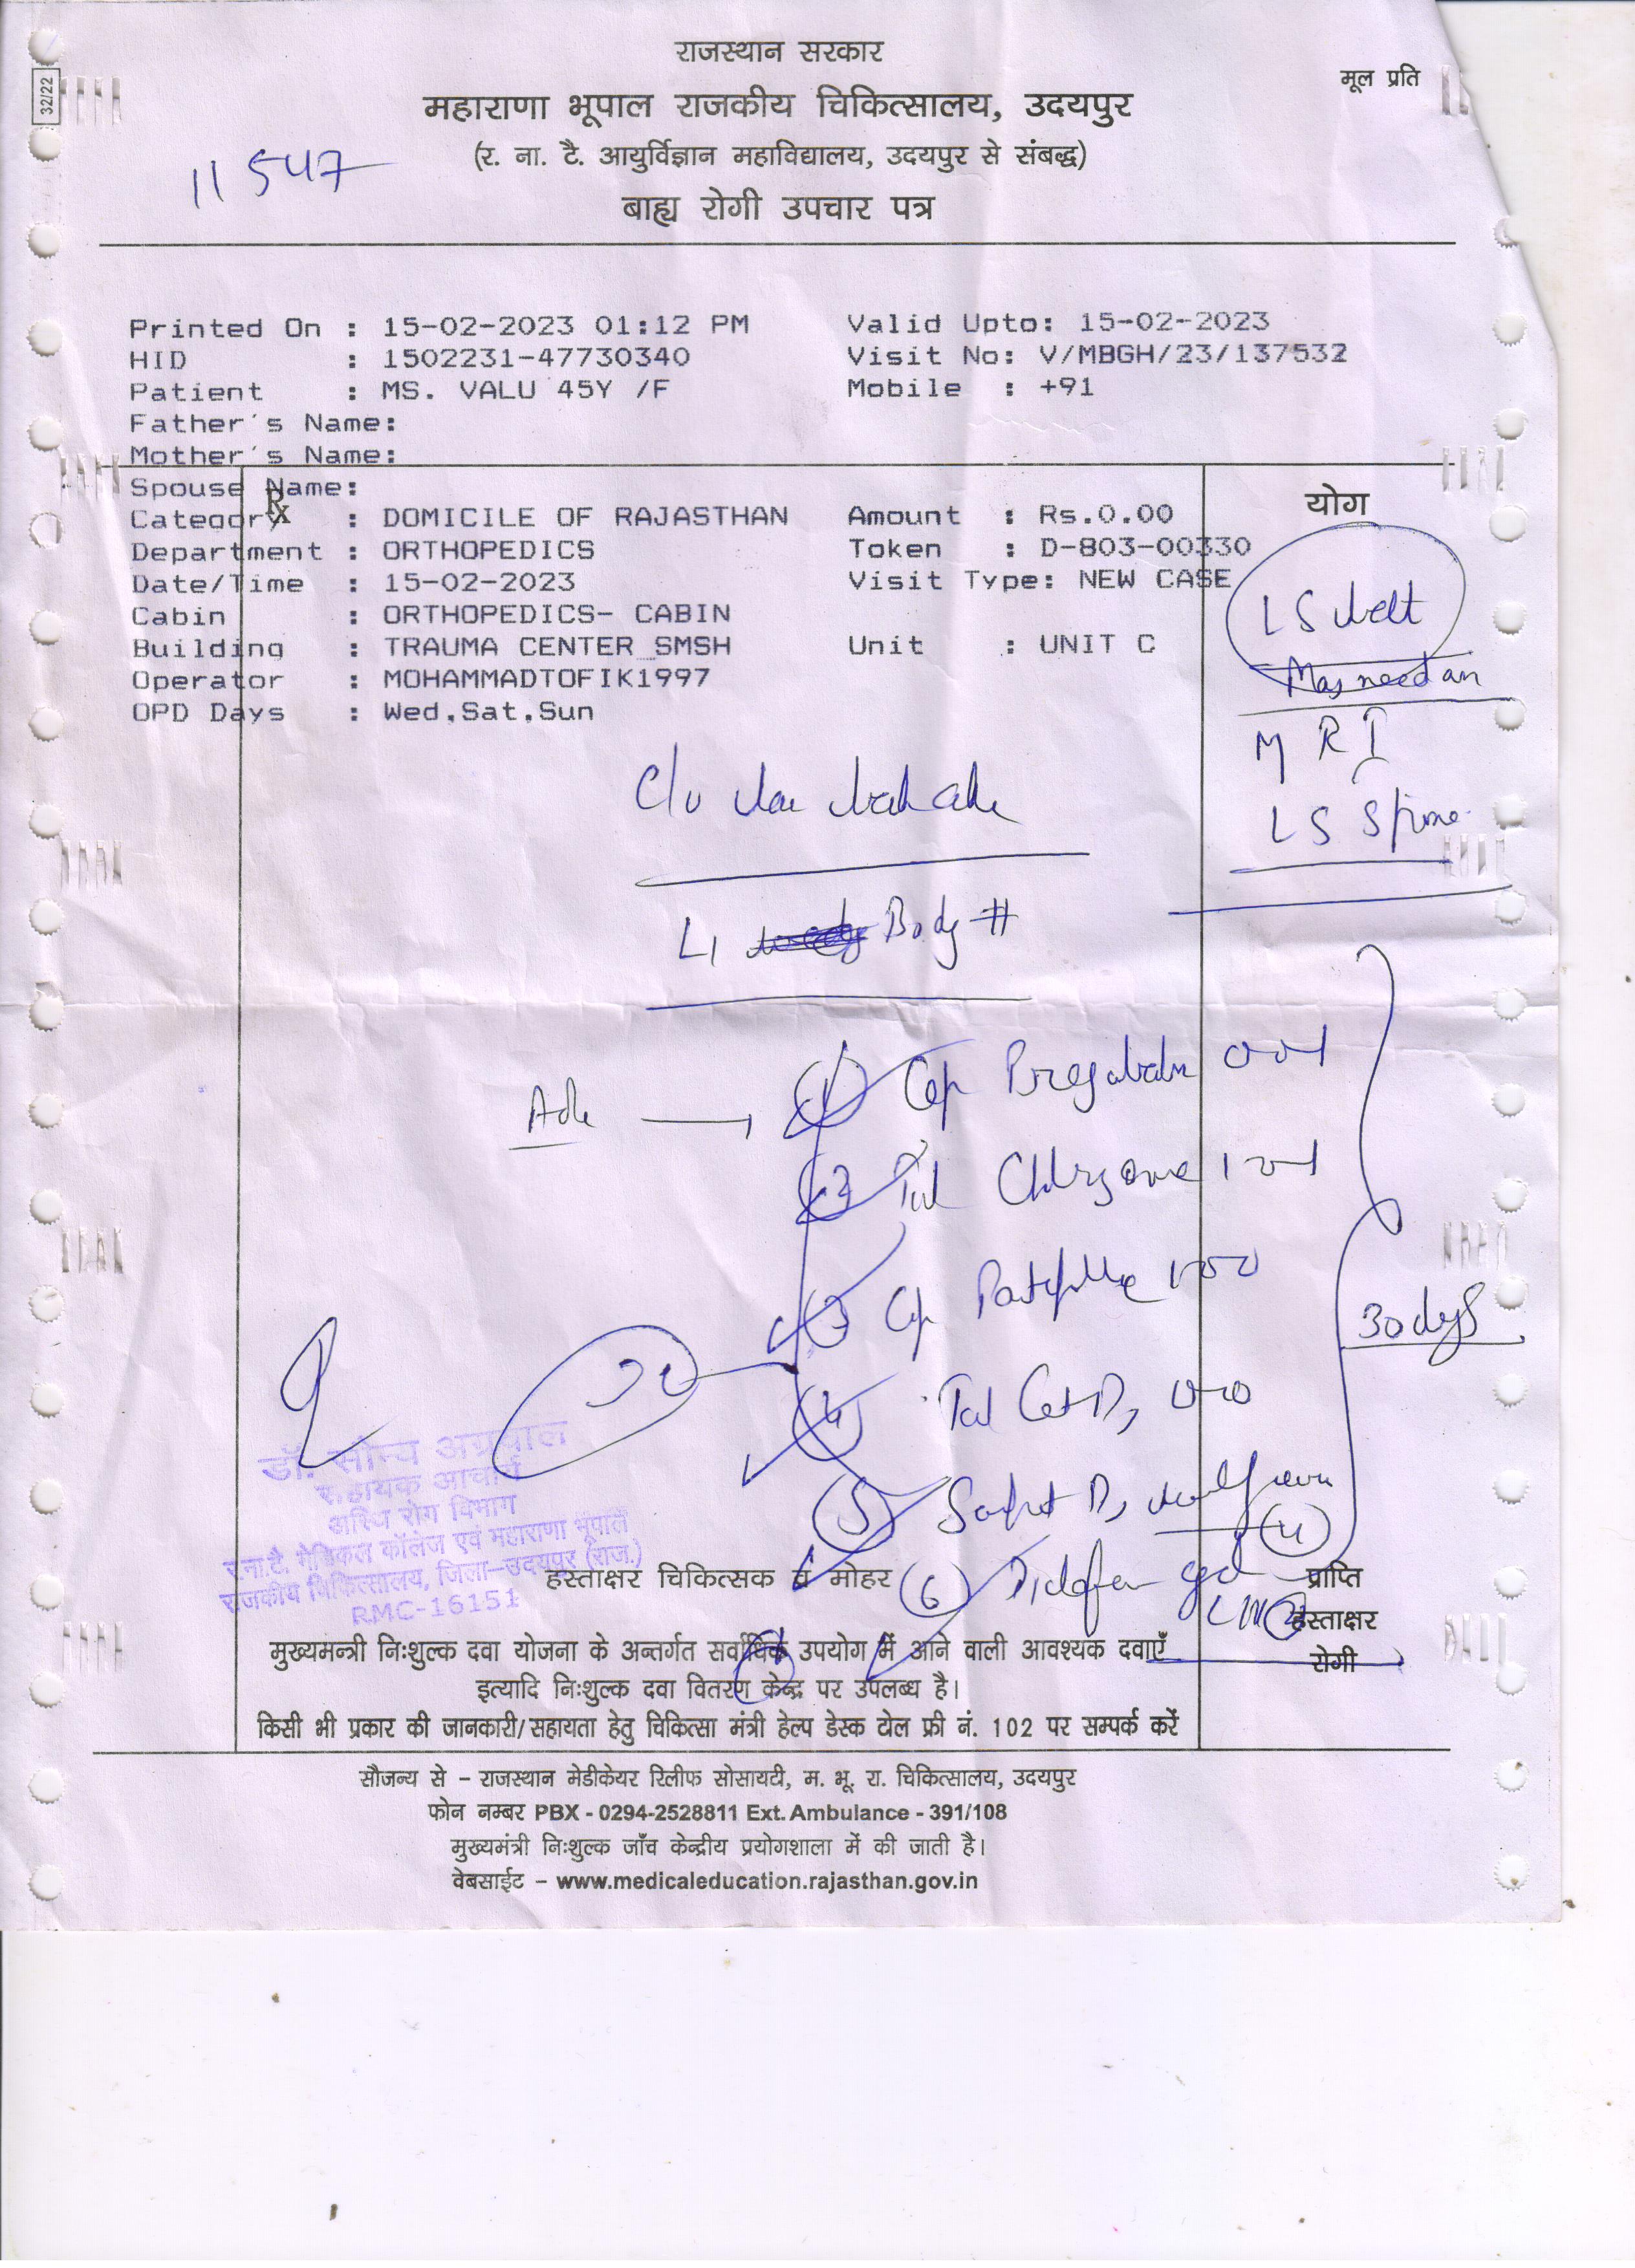 राजस्थान सरकार
मूल प्रति
32/22
महाराणा भूपाल राजकीय चिकित्सालय, उदयपुर
(र. ना. टै. आयुर्विज्ञान महाविद्यालय, उदयपुर से संबद्ध)
11547
बाह्य रोगी उपचार पत्र
Printed On : 15-02-2023 01:12 PM Valid Upto: 15-02-2023
HID : 1502231-47730340 Visit No: V/MBGH/23/137532
Patient : MS. VALU 45Y /F Mobile : +91
Father's Name:
Mother's Name:
Spouse Name:
Rx
योग
Category : DOMICILE OF RAJASTHAN Amount : Rs.0.00
Department : ORTHOPEDICS Token : D-803-00330
Date/Time : 15-02-2023 Visit Type: NEW CASE
Cabin : ORTHOPEDICS- CABIN
Building : TRAUMA CENTER SMSH Unit : UNIT C
Operator : MOHAMMADTOFIK1997
OPD Days : Wed,Sat,Sun
LS belt
May need an
MRI
LS Spine
L1 Body #
① Cap Pregabalin 0-0-1
② Tab 1-0-1
③ Cap 1-0-0
④ Tab 0-1-0
30 days
⑤ D3 (4)
⑥ gel
डॉ. सौम्य अग्रवाल
सहायक आचार्य
अस्थि रोग विभाग
र.ना.टै. मेडिकल कॉलेज एवं महाराणा भूपाल
राजकीय चिकित्सालय, जिला-उदयपुर (राज.)
RMC-16151
हस्ताक्षर चिकित्सक व मोहर
प्राप्ति
हस्ताक्षर
रोगी
मुख्यमन्त्री निःशुल्क दवा योजना के अन्तर्गत सर्वाधिक उपयोग में आने वाली आवश्यक दवाएँ
इत्यादि निःशुल्क दवा वितरण केन्द्र पर उपलब्ध है।
किसी भी प्रकार की जानकारी/सहायता हेतु चिकित्सा मंत्री हेल्प डेस्क टोल फ्री नं. 102 पर सम्पर्क करें
सौजन्य से - राजस्थान मेडीकेयर रिलीफ सोसायटी, म. भू. रा. चिकित्सालय, उदयपुर
फोन नम्बर PBX - 0294-2528811 Ext. Ambulance - 391/108
मुख्यमंत्री निःशुल्क जाँच केन्द्रीय प्रयोगशाला में की जाती है।
वेबसाईट - www.medicaleducation.rajasthan.gov.in